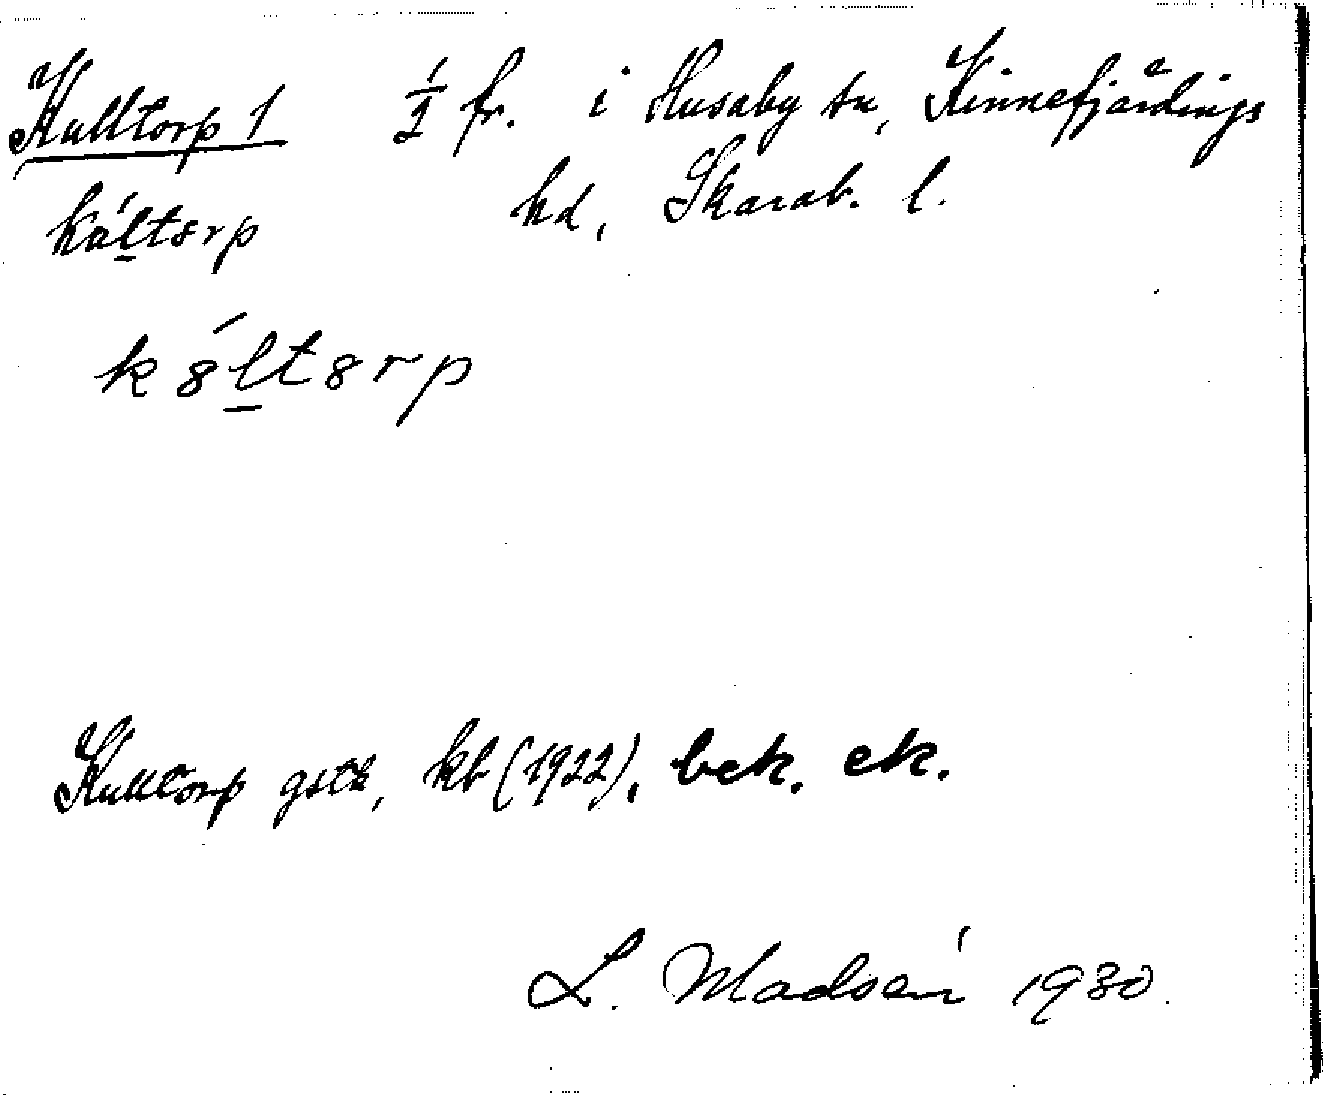 Kulltorp 1 1/2 fr. i Husaby sn, Kinnefjärdings
hd, Skarab. l.
káltorp
kóltorp
Kulltorp gstk, kb (1922), bek. ek.
L. Madsén 1930.